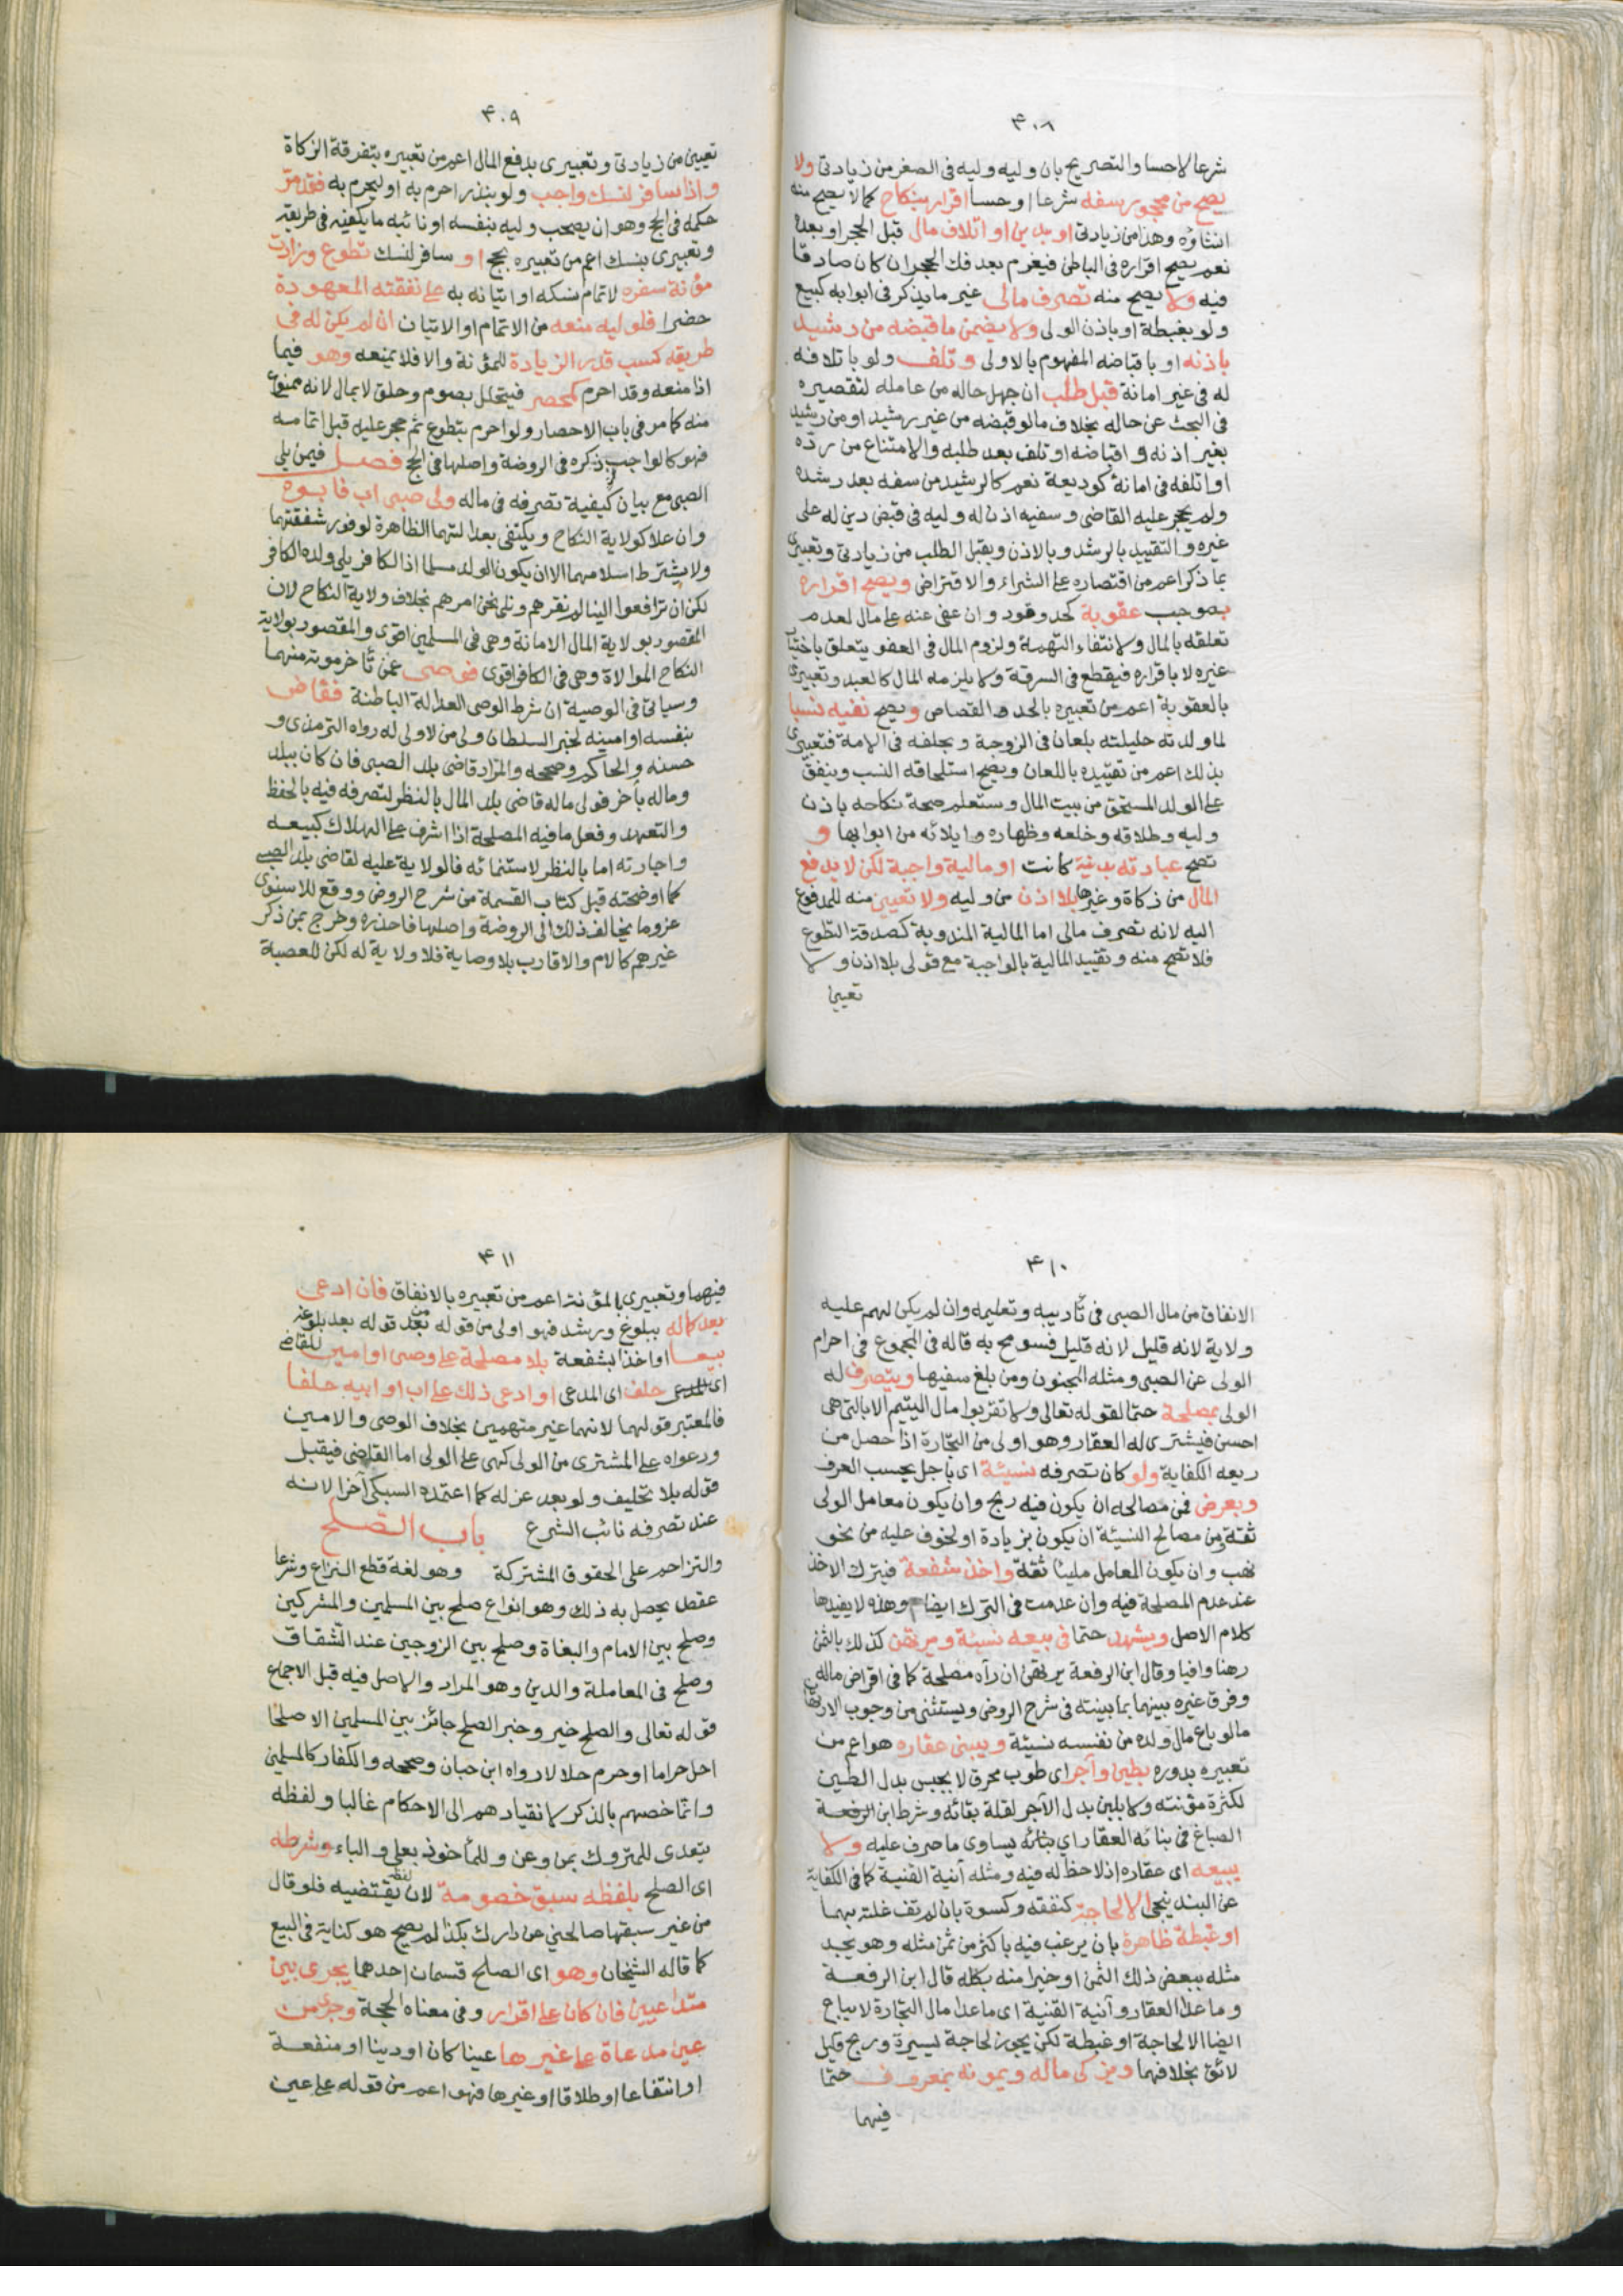 ٣٠٨
شرعا لاحسا والتصريح بان وليه وليه فى الصغر من زيادتى ولا
يصح من محجور سفه شرعا او حسا اقرار بنكاح كما لا يصح منه
انشاؤه وهذا من زيادتى او بدين او اتلاف مال قبل الحجر او بعده
نعم يصح اقراره فى الباطن فيغرم بعد فك الحجر ان كان صادقا
فيه ولا يصح منه تصرف مالى غير ما يذكر فى ابوابه كبيع
ولو بغبطة او باذن الولى ولا يضمن ما قبضه من رشيد
باذنه او باقباضه المفهوم بالاولى وتلف ولو باتلافه
له فى غير امانة قبل طلب ان جهل حاله من عامله لتقصيره
فى البحث عن حاله بخلاف ما لو قبضه من غير رشيد او من رشيد
بغير اذنه واقباضه او تلف بعد طلبه والامتناع من رده
او اتلفه فى امانة كوديعة نعم كالرشيد من سفه بعد رشده
ولم يحجر عليه القاضى وسفيه اذن له وليه فى قبض دين له على
غيره والتقييد بالرشد وبالاذن وبقبل الطلب من زيادتى وتعبيرى
بما ذكر اعم من اقتصاره على الشراء والاقتراض ويصح اقراره
بموجب عقوبة كحد وقود وان عفى عنه على مال لعدم
تعلقه بالمال ولانتفاء التهمة ولزوم المال فى العفو يتعلق باختيار
غيره لا باقراره فيقطع فى السرقة ولا يلزمه المال كالعبد وتعبيرى
بالعقوبة اعم من تعبيره بالحد والقصاص ويصح نفيه نسبا
لما ولدته حليلته بلعان فى الزوجة وبحلفه فى الامة فتعبيرى
بذلك اعم من تقييده باللعان ويصح استلحاقه النسب وينفق
على الولد المستلحق من بيت المال وستعلم صحة نكاحه باذن
وليه وطلاقه وخلعه وظهاره وايلائه من ابوابها و
تصح عبادته بدنية كانت او مالية واجبة لكن لا يدفع
المال من زكاة وغيرها بلا اذن من وليه ولا تعيين منه للمدفوع
اليه لانه تصرف مالى اما المالية المندوبة كصدقة التطوع
فلا تصح منه وتقييد المالية بالواجبة مع قولى بلا اذن ولا
تعيين
٣٠٩
تعيين من زيادتى وتعبيرى بدفع المال اعم من تعبيره بتفرقة الزكاة
واذا سافر لنسك واجب ولو بنذر احرم به او ليحرم به فقد مر
حكمه فى الحج وهو ان يصحب وليه بنفسه او نائبه ما يكفيه فى طريقه
وتعبيرى بنسك اعم من تعبيره بحج او سافر لنسك تطوع وزادت
مؤنة سفره لاتمام نسكه او اتيانه به على نفقته المعهودة
حضرا فلوليه منعه من الاتمام او الاتيان ان لم يكن له فى
طريقه كسب قدر الزيادة للمؤنة والا فلا يمنعه وهو فيما
اذا منعه وقد احرم كمحصر فيتحلل بصوم وحلق لا بمال لانه ممنوع
منه كما مر فى باب الاحصار ولو احرم بتطوع ثم حجر عليه قبل اتمامه
فهو كالواجب ذكره فى الروضة واصلها فى الحج فصل فيمن يلى
الصبى مع بيان كيفية تصرفه فى ماله ولى صبى اب فابوه
وان علا كولاية النكاح ويكتفى بعدالتهما الظاهرة لوفور شفقتهما
ولا يشترط اسلامهما الا ان يكون الولد مسلما اذ الكافر يلى ولده الكافر
لكن ان ترافعوا الينا لم نقرهم ونلى نحن امرهم بخلاف ولاية النكاح لان
المقصود بولاية المال الامانة وهى فى المسلمين اقوى والمقصود بولاية
النكاح الموالاة وهى فى الكافر اقوى فوصى عمن تأخر موته منهما
وسياتى فى الوصية ان شرط الوصى العدالة الباطنة فقاض
بنفسه او امينه لخبر السلطان ولى من لا ولى له رواه الترمذى و
حسنه والحاكم وصححه والمراد قاضى بلد الصبى فان كان ببلد
وماله بأخر فولى ماله قاضى بلد المال بالنظر لتصرفه فيه بالحفظ
والتعهد وفعل ما فيه المصلحة اذا اشرف على الهلاك كبيعه
واجارته اما بالنظر لاستنمائه فالولاية عليه لقاضى بلد الصبى
كما اوضحته قبل كتاب القسمة من شرح الروض ووقع للاسنوى
عزو ما يخالف ذلك الى الروضة واصلها فاحذره وخرج بمن ذكر
غيرهم كالام والاقارب بلا وصاية فلا ولاية له لكن للعصبة
٣١٠
الانفاق من مال الصبى فى تأديبه وتعليمه وان لم يكن لهم عليه
ولاية لانه قليل لانه قليل فسومح به قاله فى المجموع فى احرام
الولى عن الصبى ومثله المجنون ومن بلغ سفيها ويتصرف له
الولى بمصلحة حتما لقوله تعالى ولا تقربوا مال اليتيم الا بالتى هى
احسن فيشترى له العقار وهو اولى من التجارة اذا حصل من
ريعه الكفاية ولو كان تصرفه نسيئة اى باجل بحسب العرف
وبعرض فمن مصالحه ان يكون فيه ربح وان يكون معامل الولى
ثقة ومن مصالح النسيئة ان يكون بزيادة او لخوف عليه من نحو
نهب وان يكون المعامل مليئا ثقة واخذ شفعة فيترك الاخذ
عند عدم المصلحة فيه وان عدمت فى الترك ايضا وهذه لا يفيدها
كلام الاصل ويشهد حتما فى بيعه نسيئة ويرتهن كذلك بالثمن
رهنا وافيا وقال ابن الرفعة يرتهن ان رآه مصلحة كما فى اقراض ماله
وفرق غيره بينهما بما بينته فى شرح الروض ويستثنى من وجوب الارتهان
ما لو باع مال ولده من نفسه نسيئة ويبنى عقاره هو اعم من
تعبيره بدوره بطين وآجر اى طوب محرق لا بجبس بدل الطين
لكثرة مؤنته ولا بلبن بدل الآجر لقلة بقائه وشرط ابن الرفعة
الصباغ فى بنائه العقار اي بنائه يساوى ما صرف عليه ولا
يبيعه اى عقاره اذ لا حظ له فيه ومثله آنية القنية كما فى الكفاية
عن البندنيجى الا لحاجة كنفقة وكسوة بان لم تف غلته بهما
او غبطة ظاهرة بان يرغب فيه باكثر من ثمن مثله وهو يجد
مثله ببعض ذلك الثمن او خيرا منه بكله قال ابن الرفعة
وما عدا العقار وآنية القنية اى ما عدا مال التجارة لا يباع
ايضا الا لحاجة او غبطة لكن يجوز لحاجة يسيرة وربح قليل
لائق بخلافهما ويزكى ماله ويمونه بمعروف حتما
فيهما
٣١١
فيهما وتعبيرى بالمؤنة اعم من تعبيره بالانفاق فان ادعى
بعد كماله ببلوغ ورشد فهو اولى من قوله بعد قوله بعد بلوغه
بيعا او اخذا بشفعة بلا مصلحة على وصى او امين للقاضى
اى المدعى حلف اى المدعى او ادعى ذلك على اب او ابيه حلفا
فالمعتبر قولهما لانهما غير متهمين بخلاف الوصى والامين
ودعواه على المشترى من الولى كهى على الولى اما القاضى فيقبل
قوله بلا تحليف ولو بعد عزله كما اعتمده السبكى آخرا لانه
عند تصرفه نائب الشرع باب الصلح
والتزاحم على الحقوق المشتركة وهو لغة قطع النزاع وشرعا
عقد يحصل به ذلك وهو انواع صلح بين المسلمين والمشركين
وصلح بين الامام والبغاة وصلح بين الزوجين عند الشقاق
وصلح فى المعاملة والدين وهو المراد والاصل فيه قبل الاجماع
قوله تعالى والصلح خير وخبر الصلح جائز بين المسلمين الا صلحا
احل حراما او حرم حلالا رواه ابن حبان وصححه والكفار كالمسلمين
وانما خصهم بالذكر لانقيادهم الى الاحكام غالبا ولفظه
يتعدى للمتروك بمن وعن وللمأخوذ بعلى والباء وشرطه
اى الصلح بلفظه سبق خصومة لان لفظه يقتضيه فلو قال
من غير سبقها صالحني عن دارك بكذا لم يصح هو كناية فى البيع
كما قاله الشيخان وهو اى الصلح قسمان احدهما يجرى بين
متداعيين فان كان على اقرار وفى معناه الحجة وجرى من
عين مدعاة على غيرها عينا كان او دينا او منفعة
او انتفاعا او طلاقا او غيرها فهو اعم من قوله على عين